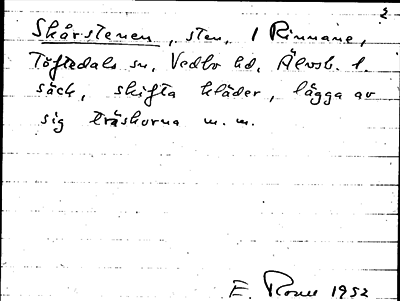 2
Skårstenen, sten, / Rinnane,
Töftedals sn, Vedbo hd, Älvsb. l.
säck, skifta kläder, lägga av
sig träskorna m. m.
E. 1952